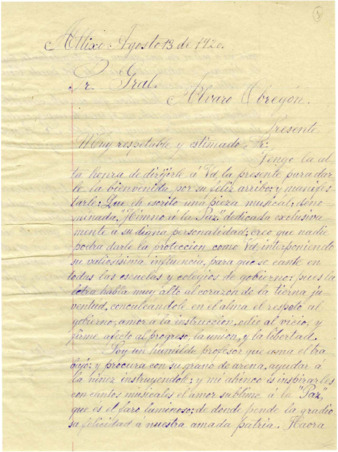 Atlixco Agosto 13 de 1920.
Sr. Gral.
Alvaro Obregón.
Presente
Muy respetable y estimado Sr:
Tengo la al
ta honra de dirijirle á Vd. la presente para dar
le la bienvenida por su feliz arribo; y manifes
tarle: Que he escrito una pieza musical: deno
minada, "Himno á la Paz" dedicada exclusiva
mente á su digna personalidad; creo que nadie
podra darle la protección como Vd. interponiendo
su valiosísima influencia, para que se cante en
todas las escuelas y colegios de gobierno; pues la
letra habla muy alto al corazon de la tierna ju
ventud, inculcandole en el alma el respeto al
gobierno; amor á la instrucción, odio al vicio; y
firme afecto al progreso, la unión, y la libertad.
Soy un humilde profesor que ama el tra
bajo; y procura con su grano de arena, ayudar á
la niñez instruyendola; y me ahinco es inspirarles
con cantos musicales el amor sublime á la "Paz",
que es el faro luminoso; de donde pende la
felicidad á nuestra amada patria.